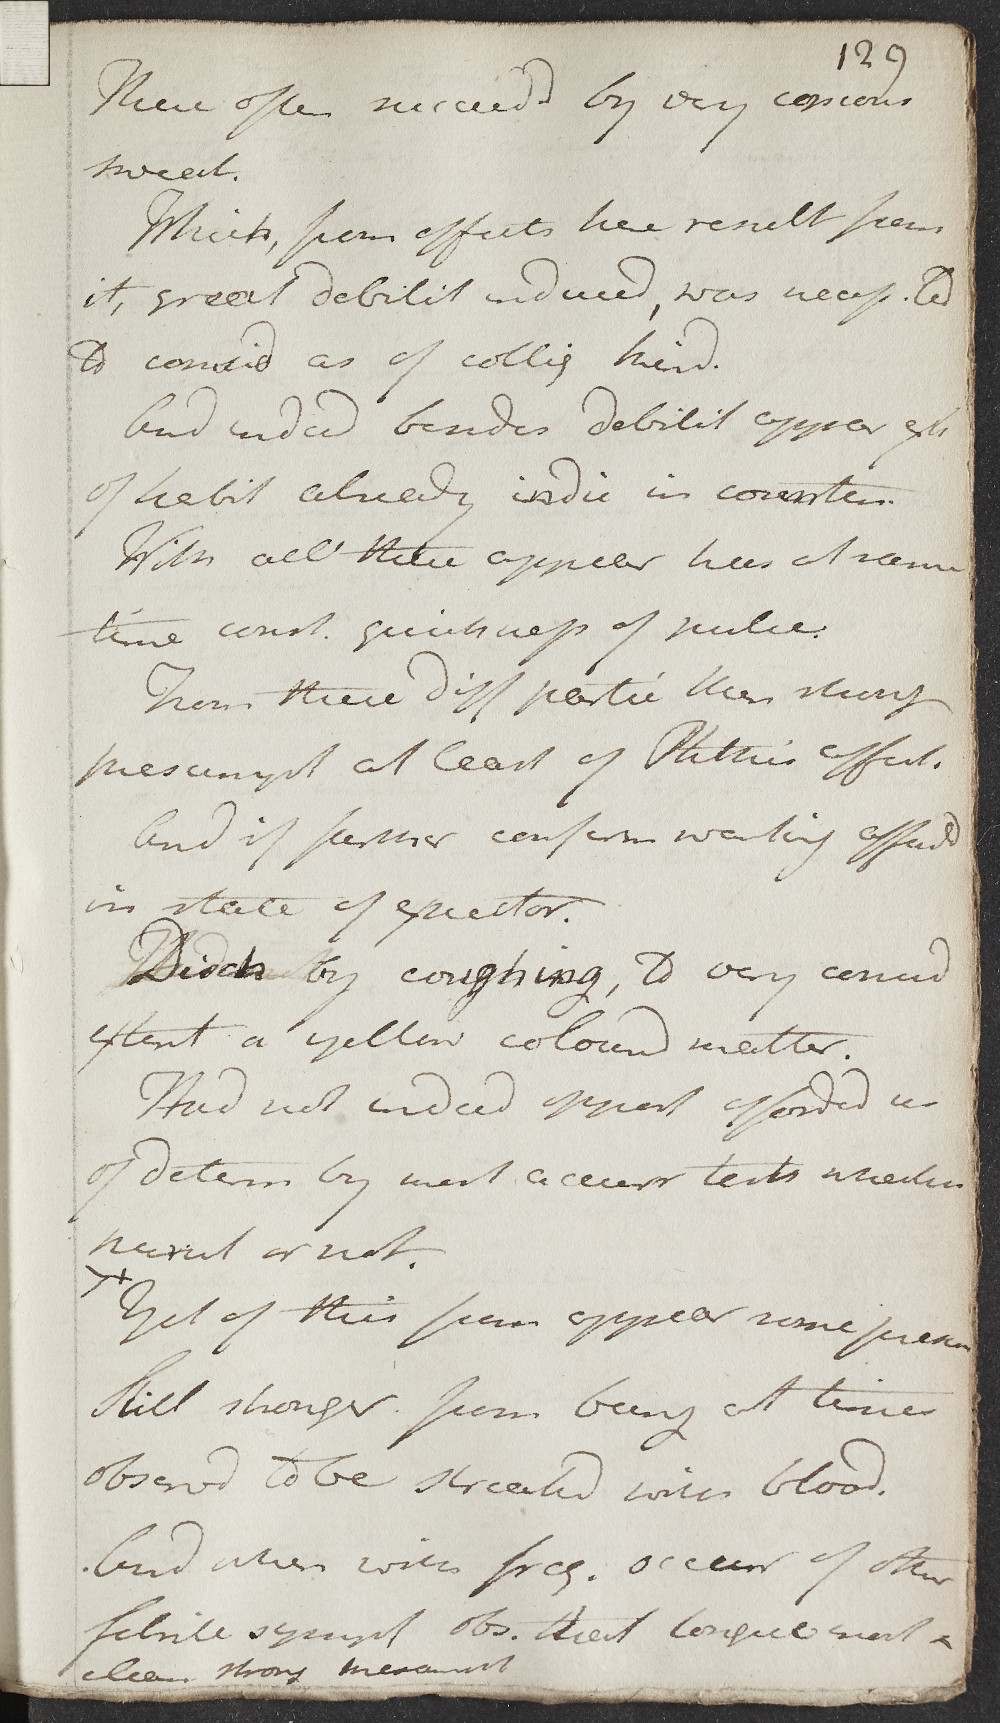 129
These often succeedd by very copious
sweat.
Which, from effects here result from
it, great debilit induced, was necess. led
to consid as of collig kind.
And indeed besides debilit appear
of habit already indic in counten.
With all these appear has at same
time const. quickness of pulse.
From these diff partic then strong
presumpt at least of Phthis affect.
And if further confirm wanting affordd
in state of expector.
Disch by coughing, to very consid
extent a yellow coloured matter.
Had not indeed opport afforded us
of determ by most accurr tests whether
purul or not.
Yet of this from appear some presum
Still stronger from being at times
observd to be streaked with blood.
And when with freq. occurr of other
febrile sympt obs. that tongue most
clean strong presumpt